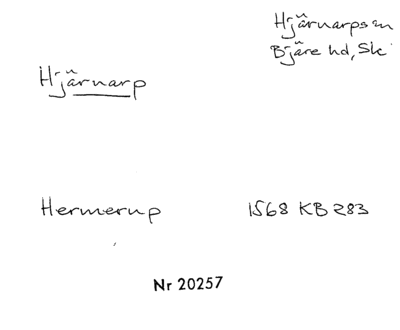 Hjärnarps sn
Bjäre hd, Sk
Hjärnarp
Hermerup 1568 KB 283
Nr 20257